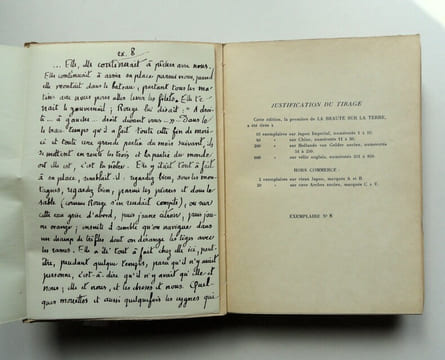 ex. 8
... Elle, elle continuait à pêcher avec nous.
Elle continuait à avoir sa place parmi nous, quand
elle montait dans le bateau, partant tous les ma-
tins avec nous pour aller lever les filets. Elle te-
nait le gouvernail ; Rouge lui disait : "A droi-
te... à gauche... droit devant vous..." Dans le
le beau temps qu'il a fait toute cette fin de mois-
ci et toute une grande partie du mois suivant, ils
se mettent en route les trois et la partie du monde
où elle est, c'est la nôtre. Elle y était tout à fait
à sa place, semblait-il : regardez bien, sous les mon-
tagnes, regardez bien, parmi les pierres et dans le
sable (comme Rouge s'en rendait compte), ou sur
cette eau grise d'abord, puis jaune citron, puis jau-
ne orange ; ensuite il semble qu'on navigue dans
un champ de trèfles dont on dérange les tiges avec
les rames. Elle a été tout à fait chez elle ici, peut-
être, pendant quelque temps, parce qu'il n'y avait
personne, c'est-à-dire qu'il n'y avait qu'elle et
nous ; elle et nous, et les choses et nous. Quel-
ques mouettes et aussi quelquefois les cygnes qui
JUSTIFICATION DU TIRAGE
Cette édition, la première de LA BEAUTÉ SUR LA TERRE,
a été tirée à
10 exemplaires sur Japon Impérial, numérotés 1 à 10.
sur Chine, numérotés 11 à 50.
200 » sur Hollande van Gelder ancien, numérotés
51 à 250.
sur vélin anglais, numérotés 251 à
HORS COMMERCE :
exemplaires sur vieux Japon, marqués A et B.
20 » sur cuve Arches ancien, marqués C à V.
EXEMPLAIRE N° 8